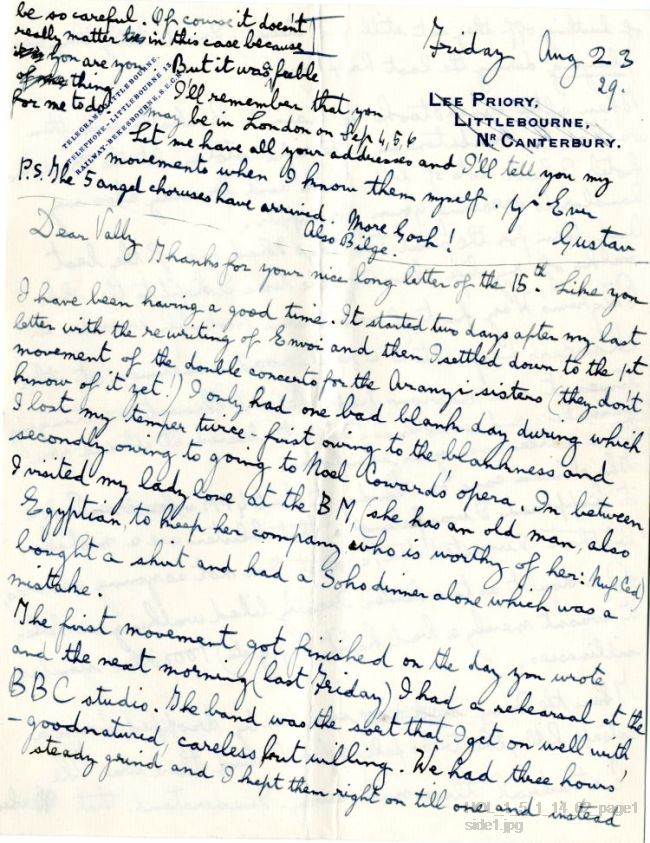 be so careful. Of course it doesn't
really matter in this case because
you are you. But it was feeble
of me thing
for me to do. I'll remember that you
may be in London on Sep 4, 5, 6
Let me have all your addresses and I'll tell you my
movements when I know them myself. Yr Ever
Gustav
P.S. The 5 angel choruses have arrived. More Gosh!
Also Bilge.
TELEGRAMS, LITTLEBOURNE.
TELEPHONE, LITTLEBOURNE
RAILWAY, BEKESBOURNE, S.E.C.R.
Friday Aug 23
29.
LEE PRIORY,
LITTLEBOURNE,
NR CANTERBURY.
Dear Vally, Thanks for your nice long letter of the 15th. Like you
I have been having a good time. It started two days after my last
letter with the rewriting of Envoi and then I settled down to the 1st
movement of the double concerto for the Aranyi sisters (they don't
know of it yet!) I only had one bad blank day during which
I lost my temper twice: first owing to the blankness and
secondly owing to going to Noel Coward's opera. In between
I visited my lady love at the BM (she has an old man, also
Egyptian, to keep her company who is worthy of her: )
bought a shirt and had a Soho dinner alone which was a
mistake.
The first movement got finished on the day you wrote
and the next morning (last Friday) I had a rehearsal at the
BBC studio. The band was the sort that I get on well with
– goodnatured, careless but willing. We had three hours'
steady grind and I kept them right on till one and instead
HOL_1_5_1_14_62-page1
side1.jpg